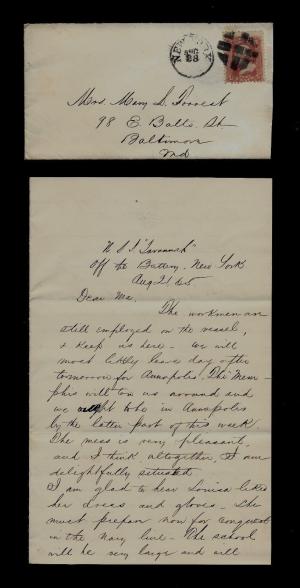 NEW YORK
AUG
28
Mrs. Mary L. Forrest
98 E. Balto. St
Baltimore
Md
U. S. S. "Savannah"
Off the Battery. New York
Aug 21 65
Dear Ma.
The workmen are
still employed on the vessel,
& keep us here - we will
most likely leave day after
tomorrow for Annapolis. The "Mem-
phis will tow us around and
we ought to be in Annapolis
by the latter part of this week.
The mess is very pleasant,
and I think altogether, I am
delightfully situated.
I am glad to hear Louisa likes
her dress and gloves - She
must prepare now for conquest
in the Navy line - The school
will be very large and will